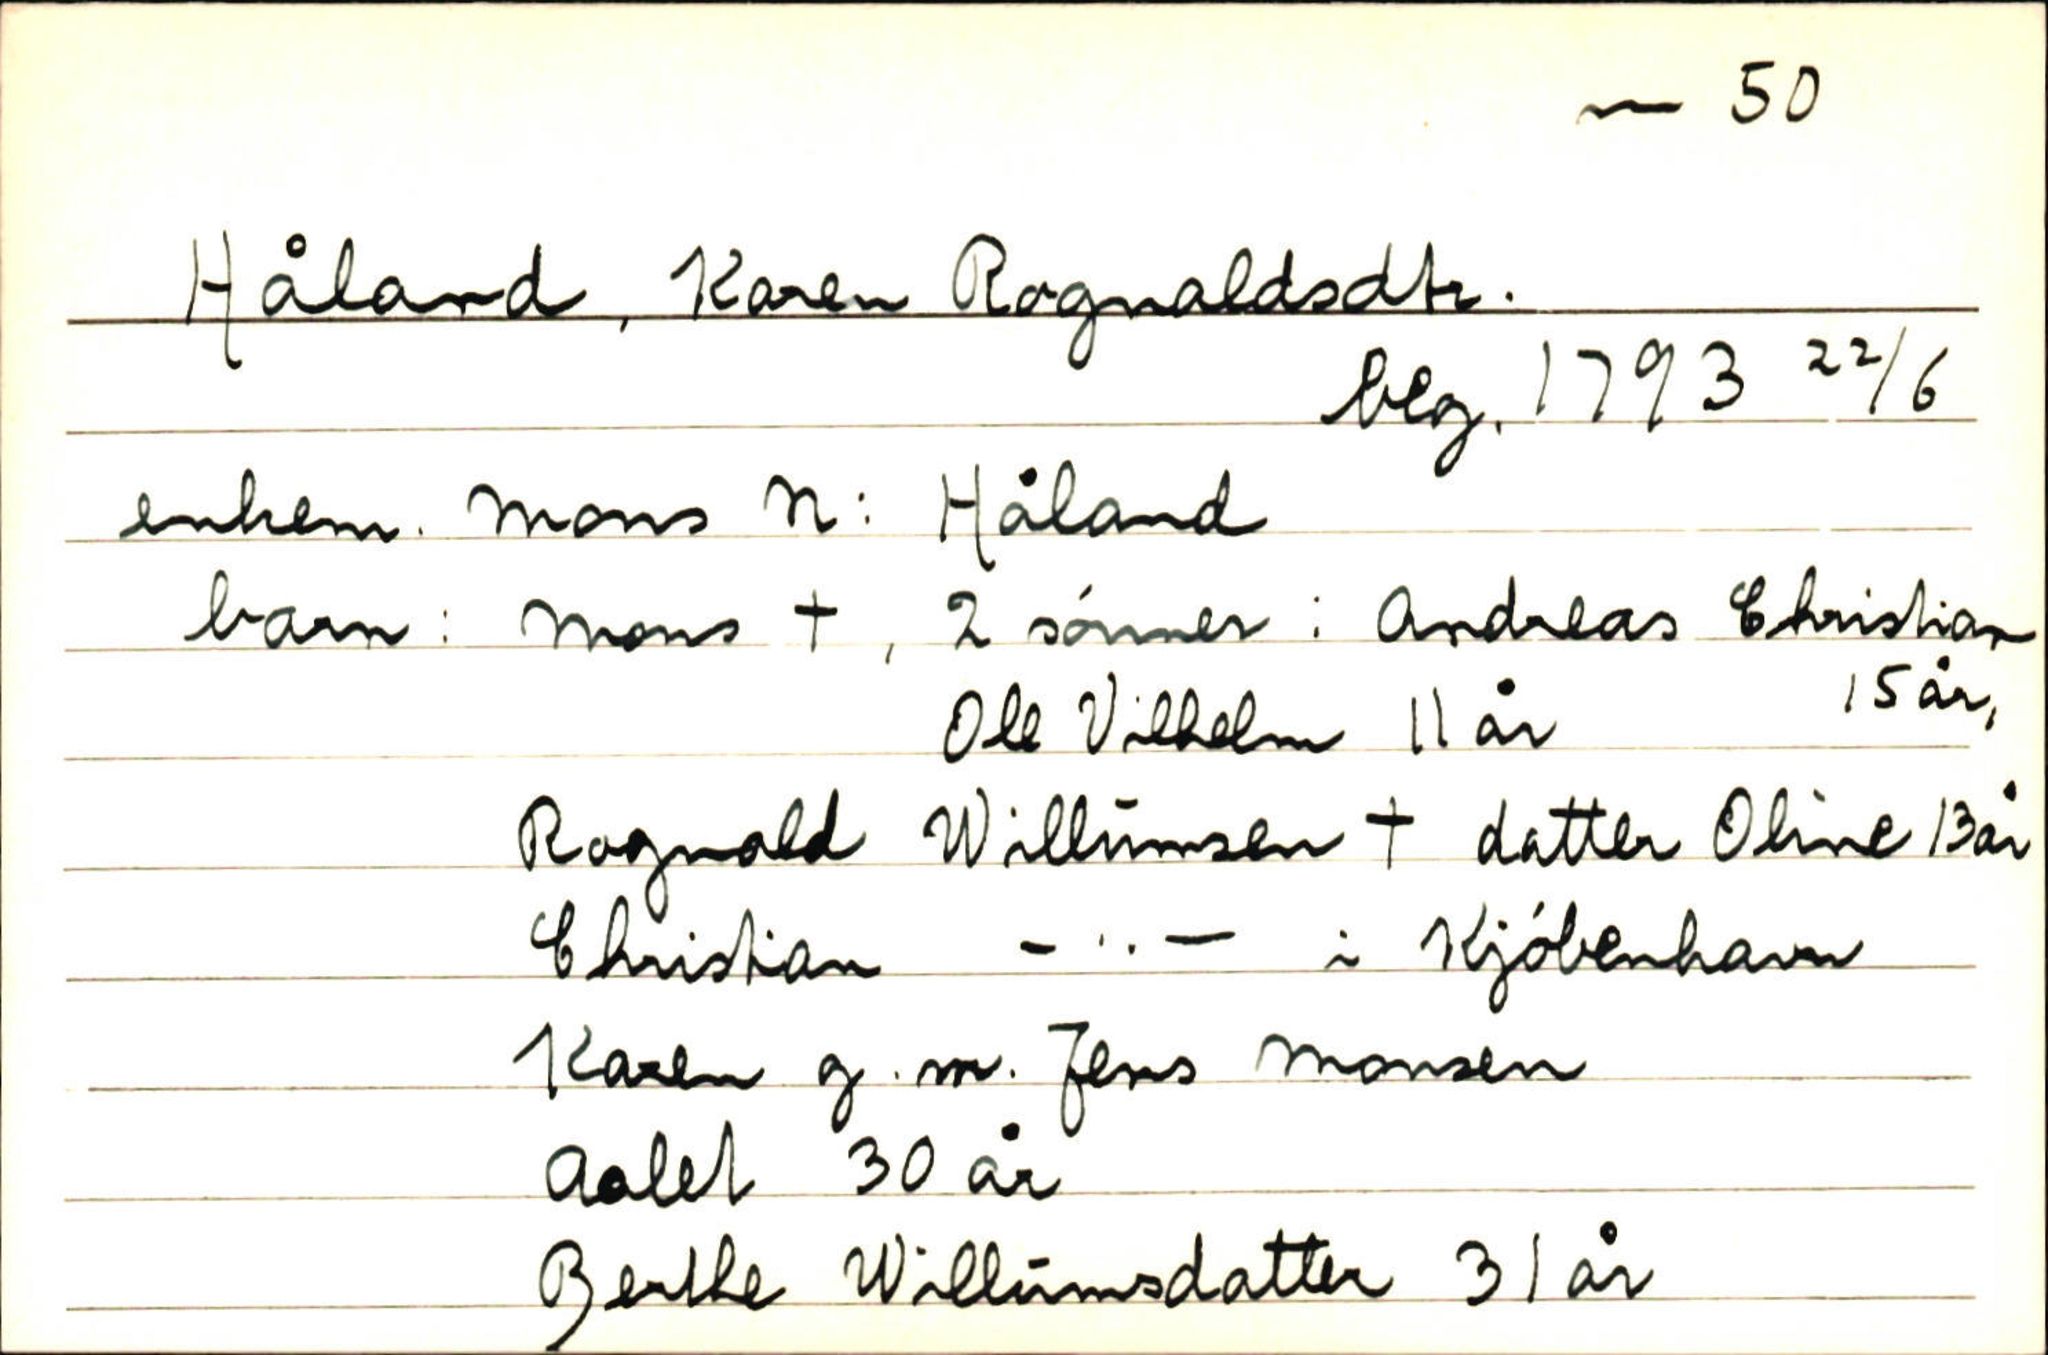 — 50
Håland, Karen Rognaldsdtr.
beg. 1793 22/6
enkem. Mons N: Håland
barn: Mons +, 2 sónner: Andreas Christian
15 år,
Ole Vilhelm 11 år
Rognald Willūmsen + datter Oline 13 år
Christian - " - i Kjóbenhavn
Karen g.m. Jens Monsen
Aalet 30 år
Berthe Willūmsdatter 31 år